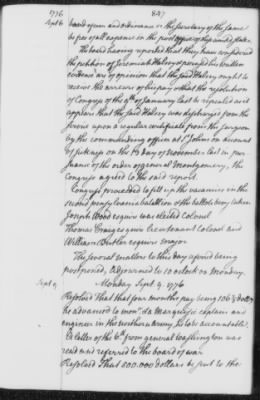 1776 847
Sept 6 board of war and ordinance or the secretary of the same
be free of all expence in the post offices of the united states.
The board having reported that they have considered
the petition of Jeremiah Halsey & perused his written
evidence are of opinion that the said Halsey ought to
receive the arrears of his pay & that the resolution
of Congress of the 6th of January last be repealed as it
appears that the said Halsey was discharged from the
service upon a regular certificate from the surgeon
by the commanding officer at St Johns on account
of sickness on the 19 day of November last in pur
suance of the order of general Montgomery, The
Congress agreed to the said report.
Congress proceeded to fill up the vacancies in the
second pensylvania batallion & the ballots being taken
Joseph Wood esquire was elected colonel
Thomas Craig esquire lieutenant Colonel and
William Butler esquire major
The several matters to this day assigned being
postponed, Adjourned to 10 oclock on Monday.
Sept 9 Monday Sept. 9. 1776
Resolved That four months pay being 106 2/3 dollars
be advanced to monsr. de Marguisie captain and
engineer in the northern army, he to be accountable.
A letter of the 6th from general Washington was
read and referred to the board of war
Resolved That 500.000 dollars be sent to the